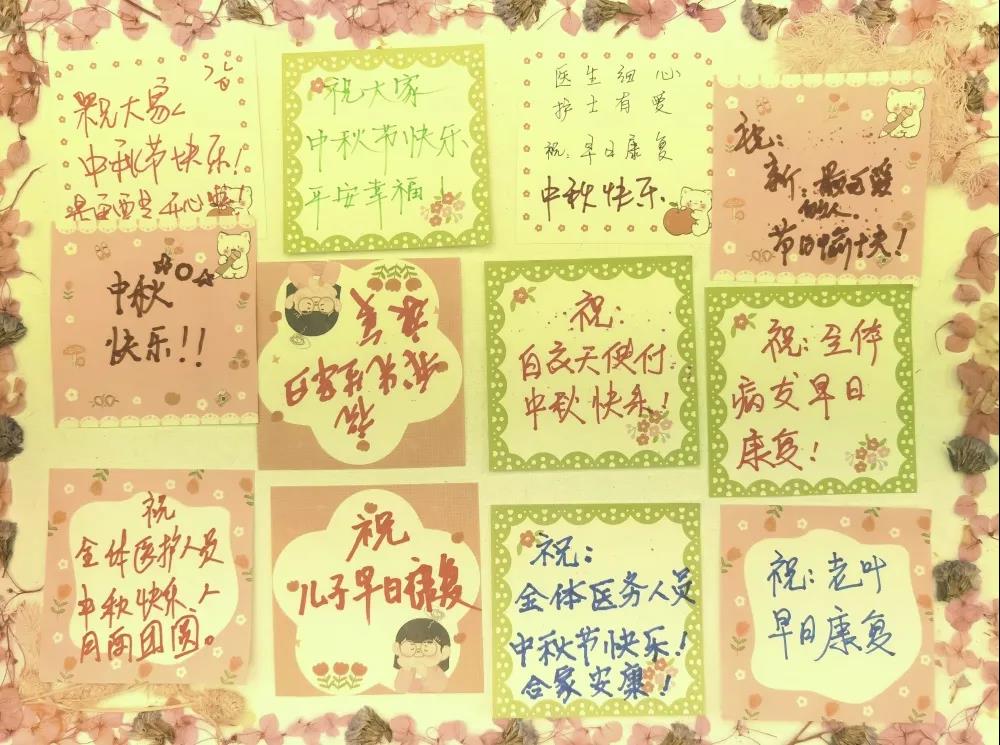 祝大家
中秋节快乐!
开心
祝大家
中秋节快乐
平安幸福!
医生细心
护士有爱
祝:早日康复
中秋快乐
祝:
新,最可爱
的人.
节日愉快!
中秋
快乐!!
祝
先生早日
康复
祝:
白衣天使们
中秋快乐!
祝:全体
病友早日
康复!
祝
全体医护人员
中秋快乐、人
月两团圆。
祝
儿子早日康复
祝:
全体医务人员
中秋节快乐!
合家安康!
祝:老叶
早日康复